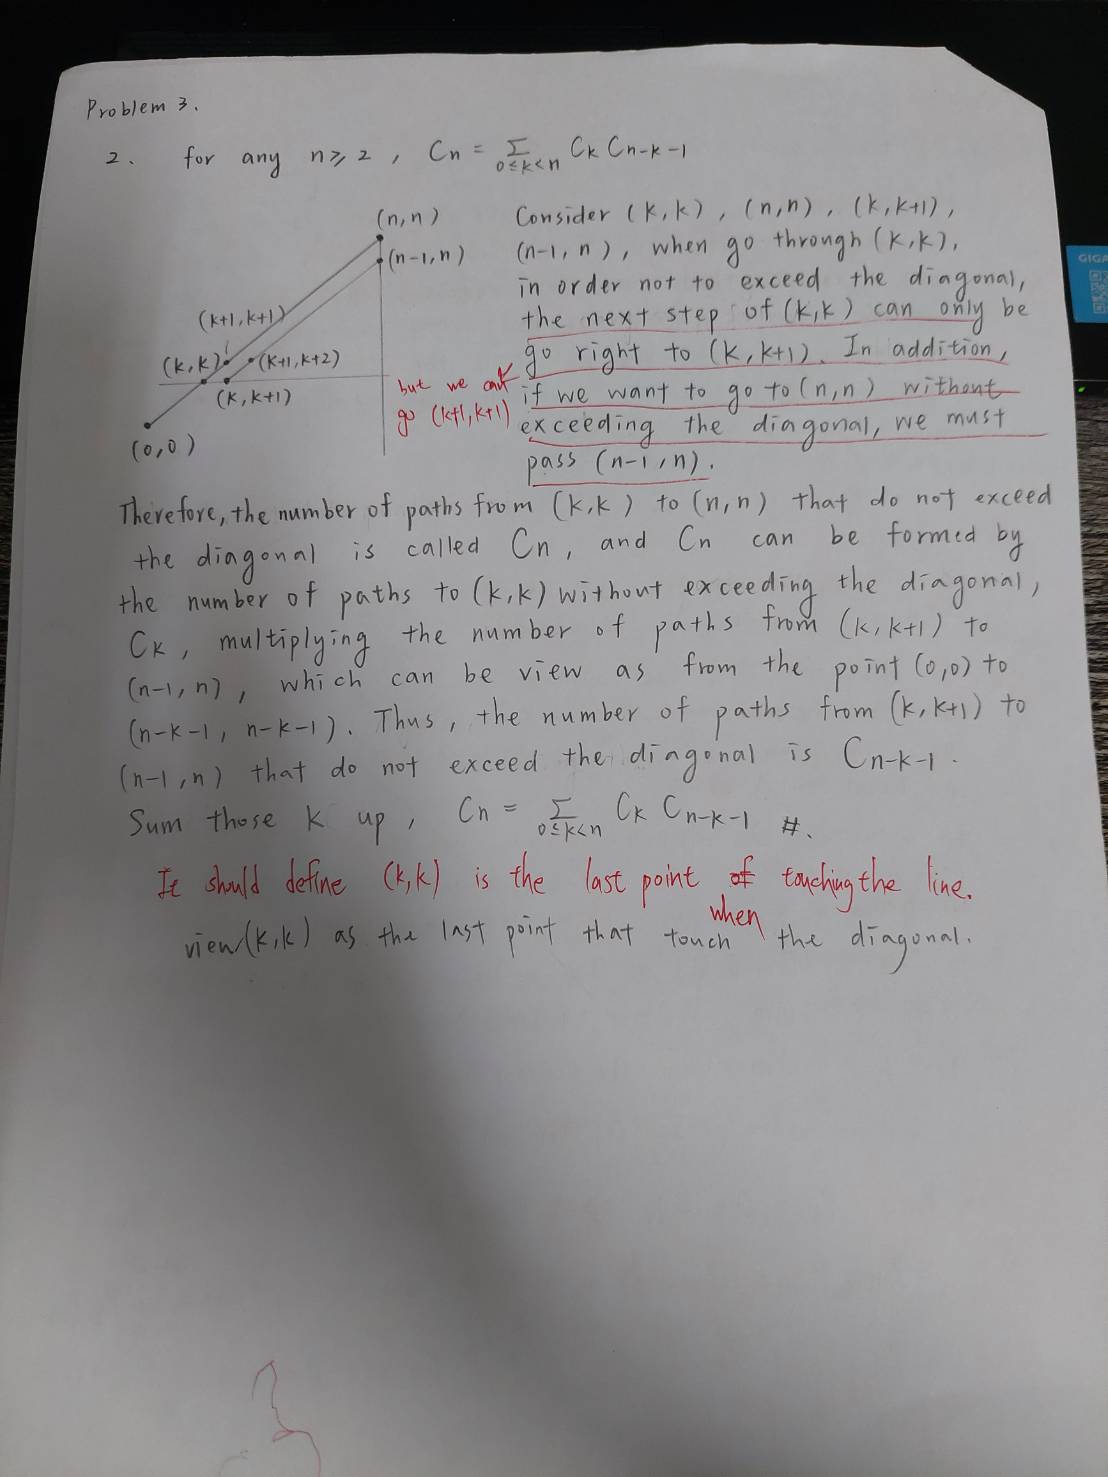 Problem 3.
2. for any n ≥ 2, Cn = Σ 0≤k<n Ck Cn-k-1
(n,n)
(n-1,n)
(k+1,k+1)
(k,k)
(k+1,k+2)
(k,k+1)
(0,0)
Consider (k,k), (n,n), (k,k+1),
(n-1,n), when go through (k,k),
in order not to exceed the diagonal,
the next step of (k,k) can only be
go right to (k,k+1). In addition,
if we want to go to (n,n) without
exceeding the diagonal, we must
pass (n-1,n).
but we can't
go (k+1,k+1)
Therefore, the number of paths from (k,k) to (n,n) that do not exceed
the diagonal is called Cn, and Cn can be formed by
the number of paths to (k,k) without exceeding the diagonal,
Ck, multiplying the number of paths from (k,k+1) to
(n-1,n), which can be view as from the point (0,0) to
(n-k-1, n-k-1). Thus, the number of paths from (k,k+1) to
(n-1,n) that do not exceed the diagonal is Cn-k-1.
Sum those k up, Cn = Σ 0≤k<n Ck Cn-k-1 #.
It should define (k,k) is the last point of touching the line.
when
view (k,k) as the last point that touch the diagonal.
GIGA